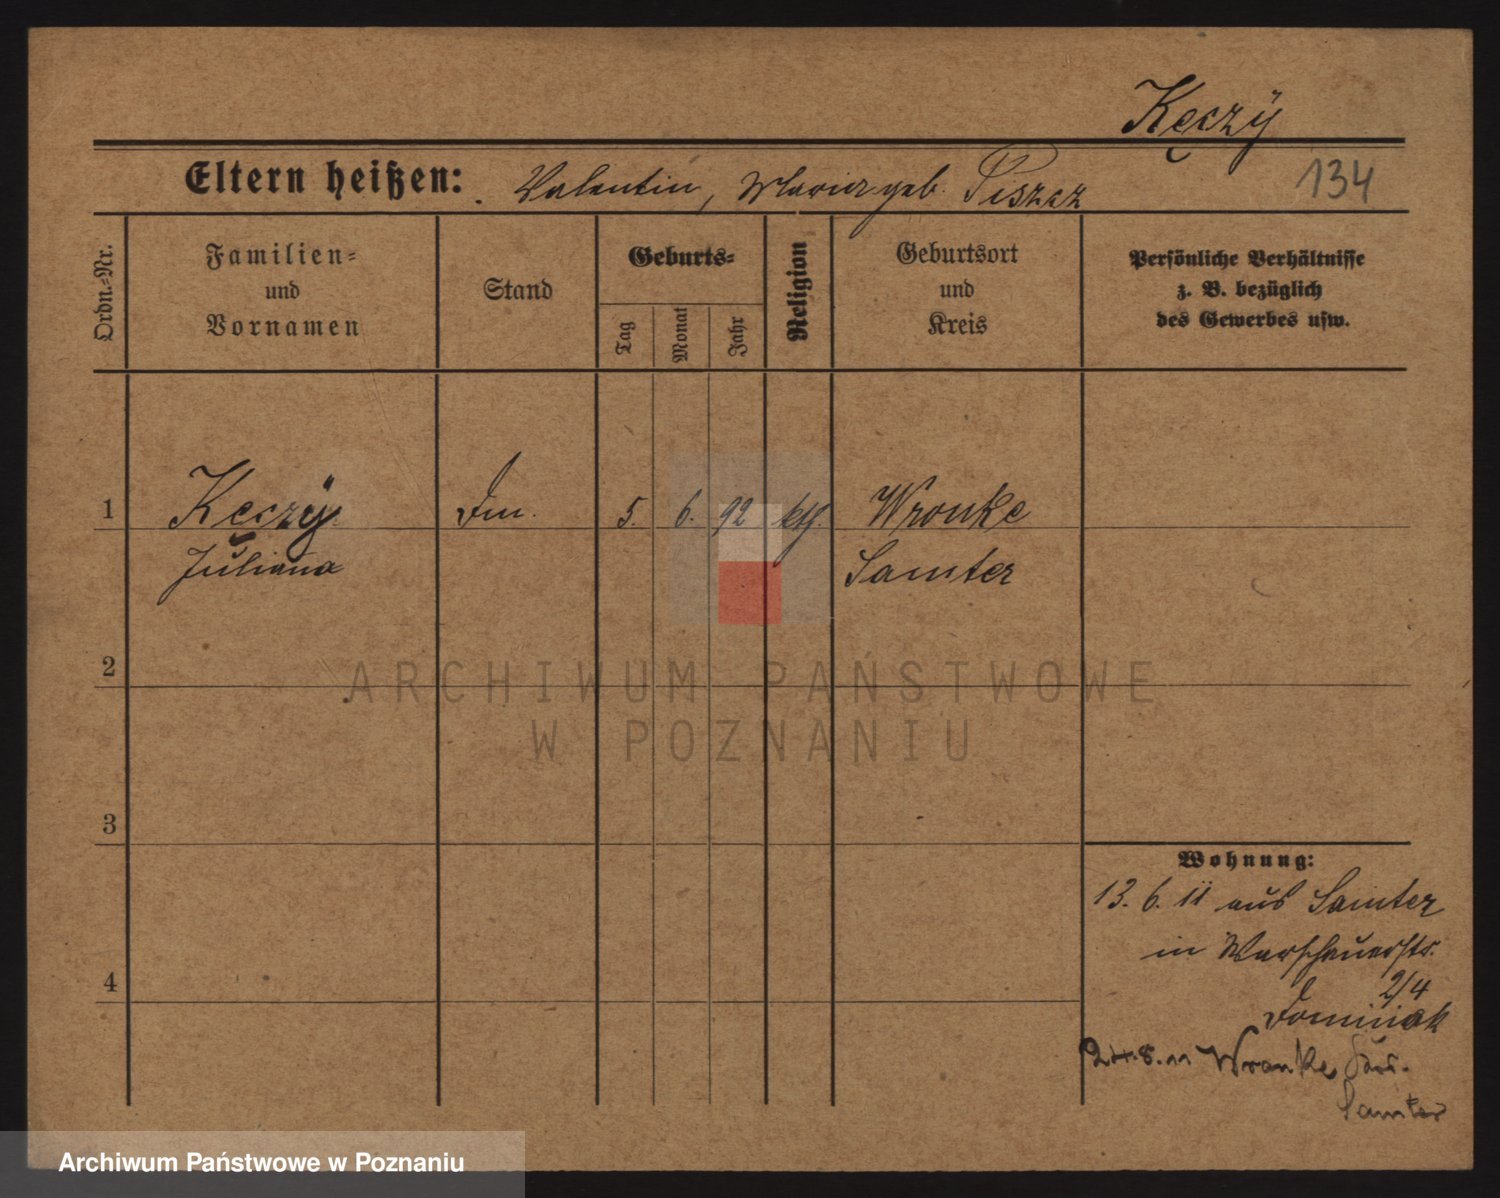 Kęczÿ
Eltern heißen: Valentin, Maria geb. Piszcz
134
Ordn.-Nr.
Familien-
und
Vornamen
Stand
Geburts-
Tag
Monat
Jahr
Religion
Geburtsort
und
Kreis
Persönliche Verhältnisse
z. B. bezüglich
des Gewerbes usw.
1
Kęczÿ
Juliana
5.
6.
92
kth.
Wronke
Samter
2
ARCHIWUM PAŃSTWOWE
W POZNANIU
3
4
Wohnung:
13. 6. 11 aus Samter
in Warschauerstr.
2/4
Dominiak
24.8.11 Wronke
Samter
Archiwum Państwowe w Poznaniu